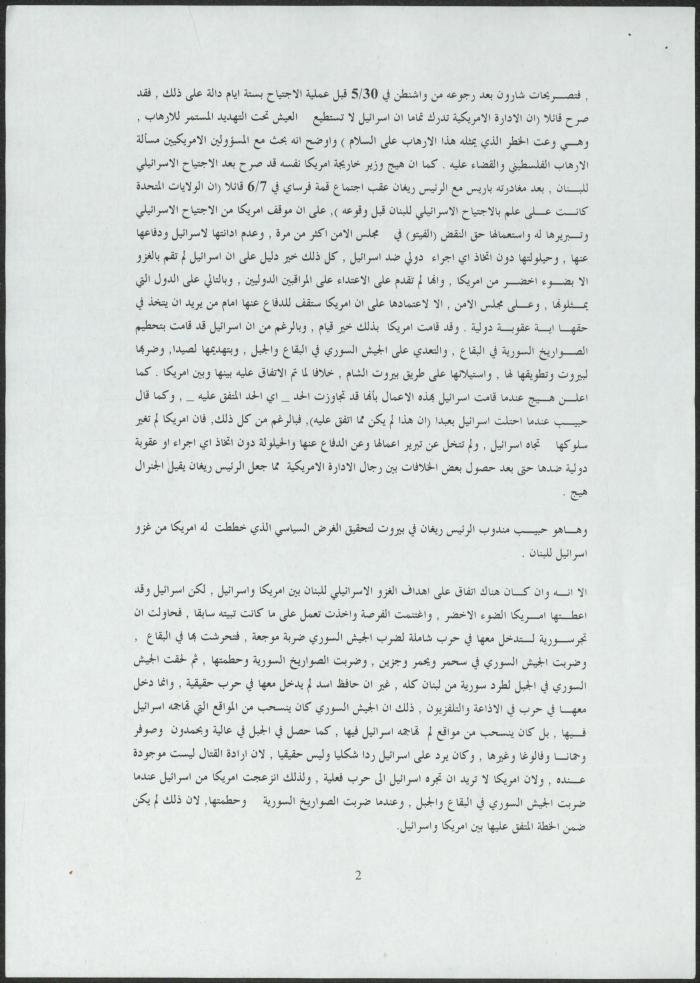 , فتصـــريحات شارون بعد رجوعه من واشنطن في 5/30 قبل عملية الاجتياح بستة ايام دالة على ذلك , فقد
صرح قائلا (ان الادارة الامريكية تدرك تماما ان اسرائيل لا تستطيع العيش تحت التهديد المستمر للارهاب ,
وهـــي وعت الخطر الذي يمثله هذا الارهاب على السلام ) واوضح انه بحث مع المسؤولين الامريكيين مسألة
الارهاب الفلسطيني والقضاء عليه . كما ان هيج وزير خارجية امريكا نفسه قد صرح بعد الاجتياح الاسرائيلي
للبـــنان , بعد مغادرته باريس مع الرئيس ريغان عقب اجتماع قمة فرساي في 6/7 قائلا (ان الولايات المتحدة
كانـــت عـــلى علم بالاجتياح الاسرائيلي للبنان قبل وقوعه ), على ان موقف امريكا من الاجتياح الاسرائيلي
وتـــبريرها له واستعمالها حق النقض (الفيتو) في مجلس الامن اكثر من مرة , وعدم ادانتها لاسرائيل ودفاعها
عنها , وحيلولتها دون اتخاذ اي اجراء دولي ضد اسرائيل , كل ذلك خير دليل على ان اسرائيل لم تقم بالغزو
الا بضـــوء اخضـــر من امريكا , وانها لم تقدم على الاعتداء على المراقبين الدوليين , وبالتالي على الدول التي
يمـــثلونها , وعـــلى مجلس الامن , الا لاعتمادها على ان امريكا ستقف للدفاع عنها امام من يريد ان يتخذ في
حقهـــا ايـــة عقوبـــة دولية . وقد قامت امريكا بذلك خير قيام , وبالرغم من ان اسرائيل قد قامت بتحطيم
الصـــواريخ السورية في البقاع , والتعدي على الجيش السوري في البقاع والجبل , وبتهديمها لصيدا, وضربها
لبيروت وتطويقها لها , واستيلائها على طريق بيروت الشام , خلافا لما تم الاتفاق عليه بينها وبين امريكا . كما
اعلـــن هـــيج عندما قامت اسرائيل بهذه الاعمال بأنها قد تجاوزت الحد _ اي الحد المتفق عليه _ , وكما قال
حبيـــب عندما احتلت اسرائيل بعبدا (ان هذا لم يكن مما اتفق عليه), فبالرغم من كل ذلك, فان امريكا لم تغير
سلوكها تجاه اسرائيل , ولم تتخل عن تبرير اعمالها وعن الدفاع عنها والحيلولة دون اتخاذ اي اجراء او عقوبة
دولية ضدها حتى بعد حصول بعض الخلافات بين رجال الادارة الامريكية مما جعل الرئيس ريغان يقيل الجنرال
هيج .
وهـــاهو حبيـــب مندوب الرئيس ريغان في بيروت لتحقيق الغرض السياسي الذي خططت له امريكا من غزو
اسرائيل للبنان .
الا انـــه وان كـــان هناك اتفاق على اهداف الغزو الاسرائيلي للبنان بين امريكا واسرائيل , لكن اسرائيل وقد
اعطـــتها امـــريكا الضوء الاخضر , واغتنمت الفرصة واخذت تعمل على ما كانت تبيته سابقا , فحاولت ان
تجرســـورية لـــتدخل معها في حرب شاملة لضرب الجيش السوري ضربة موجعة , فتحرشت بها في البقاع ,
وضربت الجيش السوري في سحمر ويحمر وجزين , وضربت الصواريخ السورية وحطمتها , ثم لحقت الجيش
السوري في الجبل لطرد سورية من لبنان كله , غير ان حافظ اسد لم يدخل معها في حرب حقيقية , وانما دخل
معهـــا في حرب في الاذاعة والتلفزيون , ذلك ان الجيش السوري كان ينسحب من المواقع التي تهاجمه اسرائيل
فـــيها , بل كان ينسحب من مواقع لم تهاجمه اسرائيل فيها , كما حصل في الجبل في عالية وبحمدون وصوفر
وحمانـــا وفالوغا وغيرها , وكان يرد على اسرائيل ردا شكليا وليس حقيقيا , لان ارادة القتال ليست موجودة
عـــنده , ولان امريكا لا تريد ان تجره اسرائيل الى حرب فعلية , ولذلك انزعجت امريكا من اسرائيل عندما
ضربت الجيش السوري في البقاع والجبل , وعندما ضربت الصواريخ السورية وحطمتها, لان ذلك لم يكن
ضمن الخطة المتفق عليها بين امريكا واسرائيل.
2